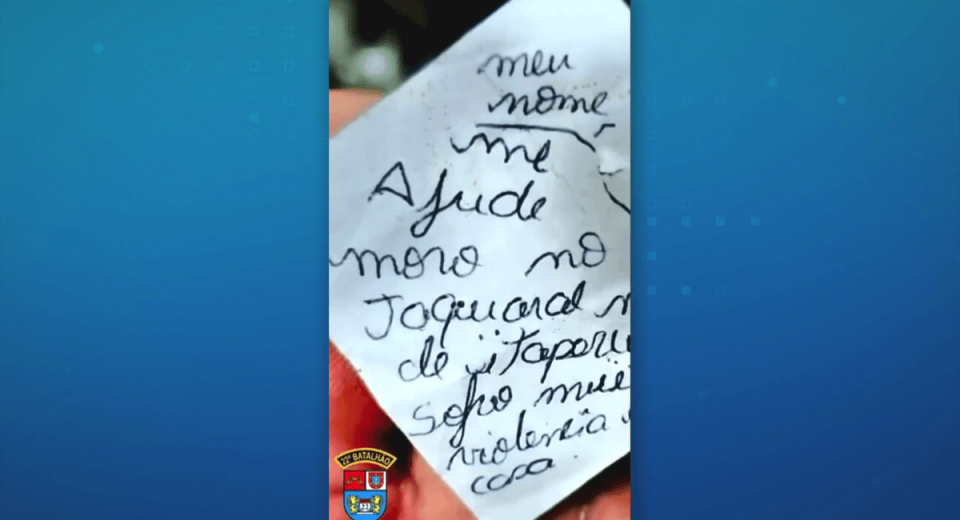 meu
nome
me
Ajude
moro no
Jaquaral
de
sofro
violencia
casa.
22º BATALHÃO